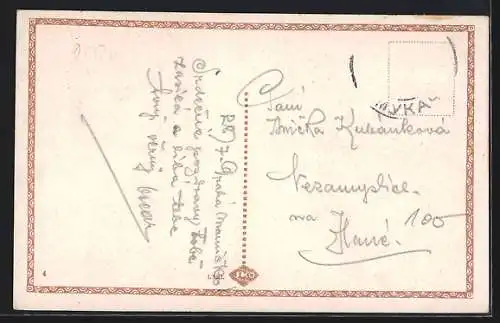 28/7.
Drahá Mamičko
Srdečné pozdravy Tobě
zasílá a líbá Tebe
Tvůj věrný Oscar
Paní
Anička Kubánková
Nezamyslice.
na
Hané.
100
VKA